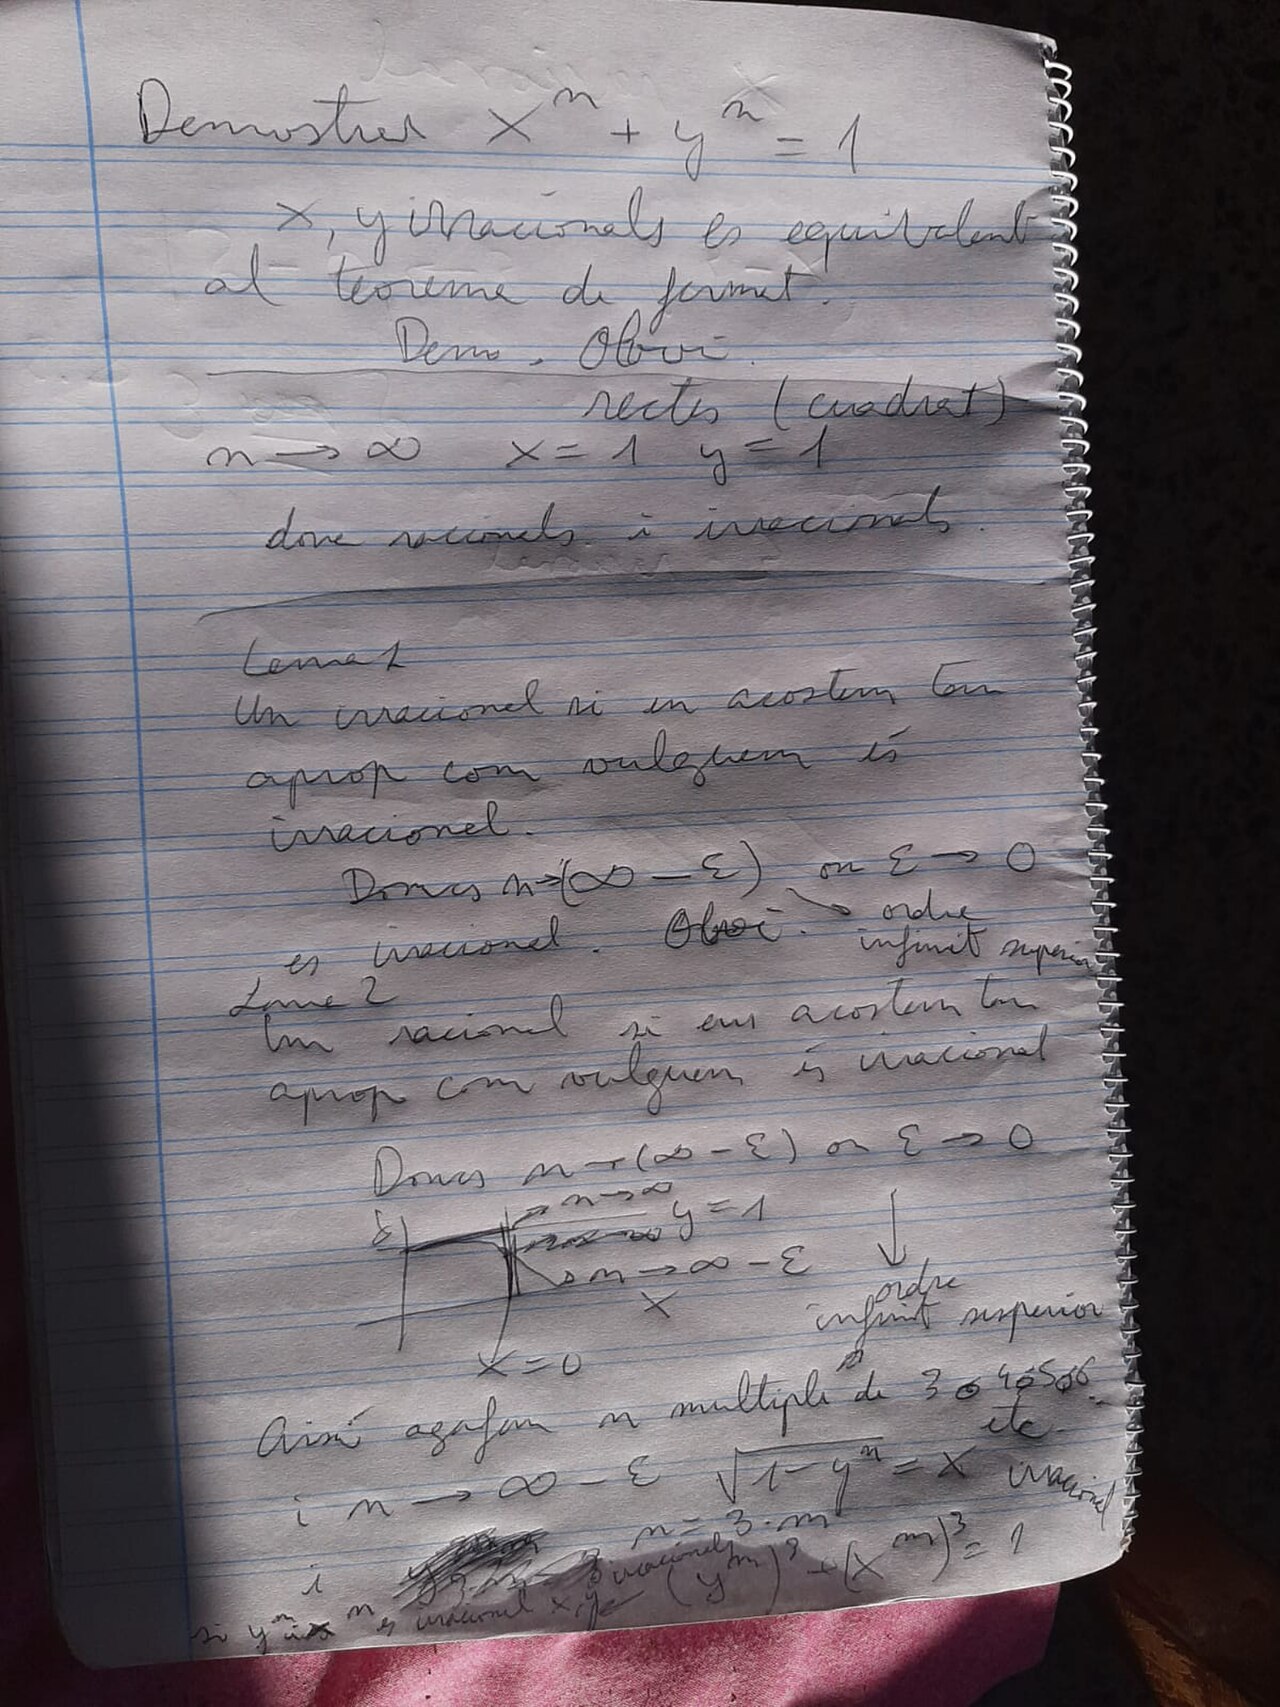 Demostrar xⁿ + yⁿ = 1
x, y irracionals es equivalent
al teorema de fermat.
Demo. Obvi.
rectes (cuadrat)
n → ∞ x = 1 y = 1
dona racionals i irracionals.
Lema 1
Un irracional si en acostem tan
aprop com vulguem és
irracional.
Doncs n → (∞ − ε) on ε → 0
es irracional. Obvi. ordre
infinit superior
Lema 2
Un racional si ens acostem tan
aprop com vulguem és irracional
Doncs n → (∞ − ε) on ε → 0
n → ∞
y = 1
n → ∞ − ε
x
ordre
infinit superior
x = 0
Així agafam n multiple de 3 o 4 o 5 o 6
etc.
i n → ∞ − ε √1 − yⁿ = x irracional
n = 3·m
i irracionals (yᵐ)³ + (xᵐ)³ = 1
si yᵐ xᵐ es irracional x, y